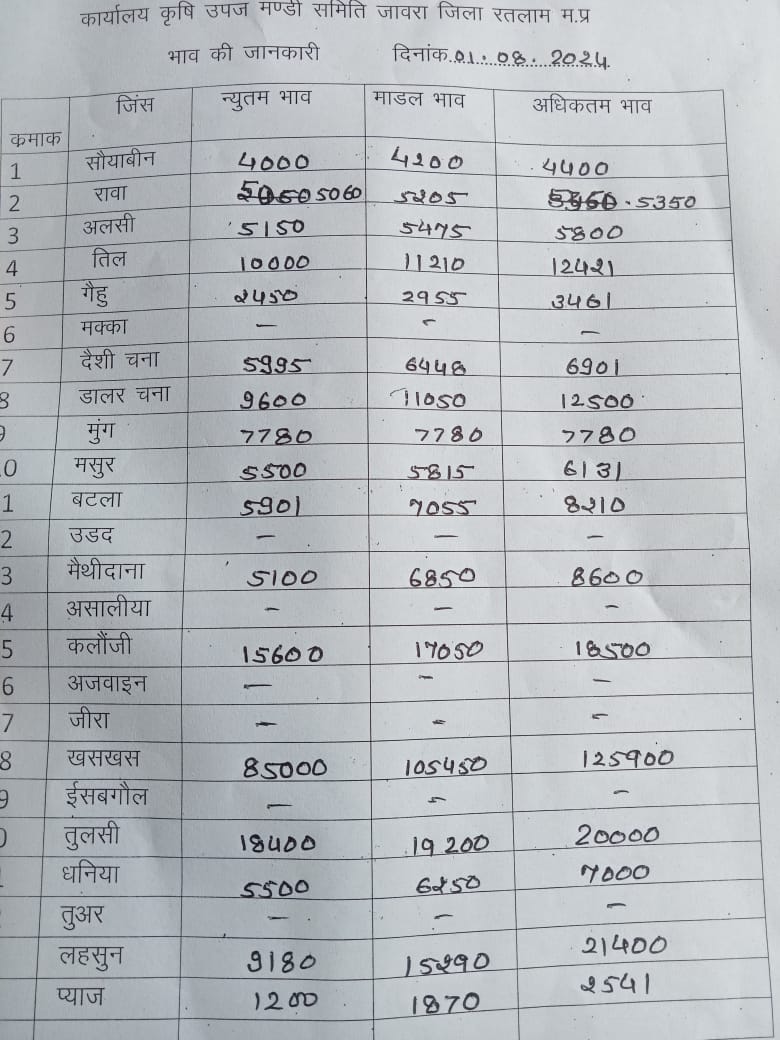 कार्यालय कृषि उपज मण्डी समिति जावरा जिला रतलाम म.प्र
भाव की जानकारी दिनांक.01.08.2024
कमाक जिंस न्युतम भाव माडल भाव अधिकतम भाव
1 सौयाबीन 4000 4200 4400
2 रावा 5060 5205 5350
3 अलसी 5150 5475 5800
4 तिल 10000 11210 12421
5 गैहु 2450 2955 3461
6 मक्का – – –
7 दैशी चना 5995 6448 6901
8 डालर चना 9600 11050 12500
9 मुंग 7780 7780 7780
0 मसुर 5500 5815 6131
1 बटला 5901 7055 8210
2 उडद – – –
3 मैथीदाना 5100 6850 8600
4 असालीया – – –
5 कलौंजी 15600 17050 18500
6 अजवाइन – – –
7 जीरा – – –
8 खसखस 85000 105450 125900
9 ईसबगौल – – –
तुलसी 18400 19200 20000
धनिया 5500 6250 7000
तुअर – – –
लहसुन 9180 15290 21400
प्याज 1200 1870 2541